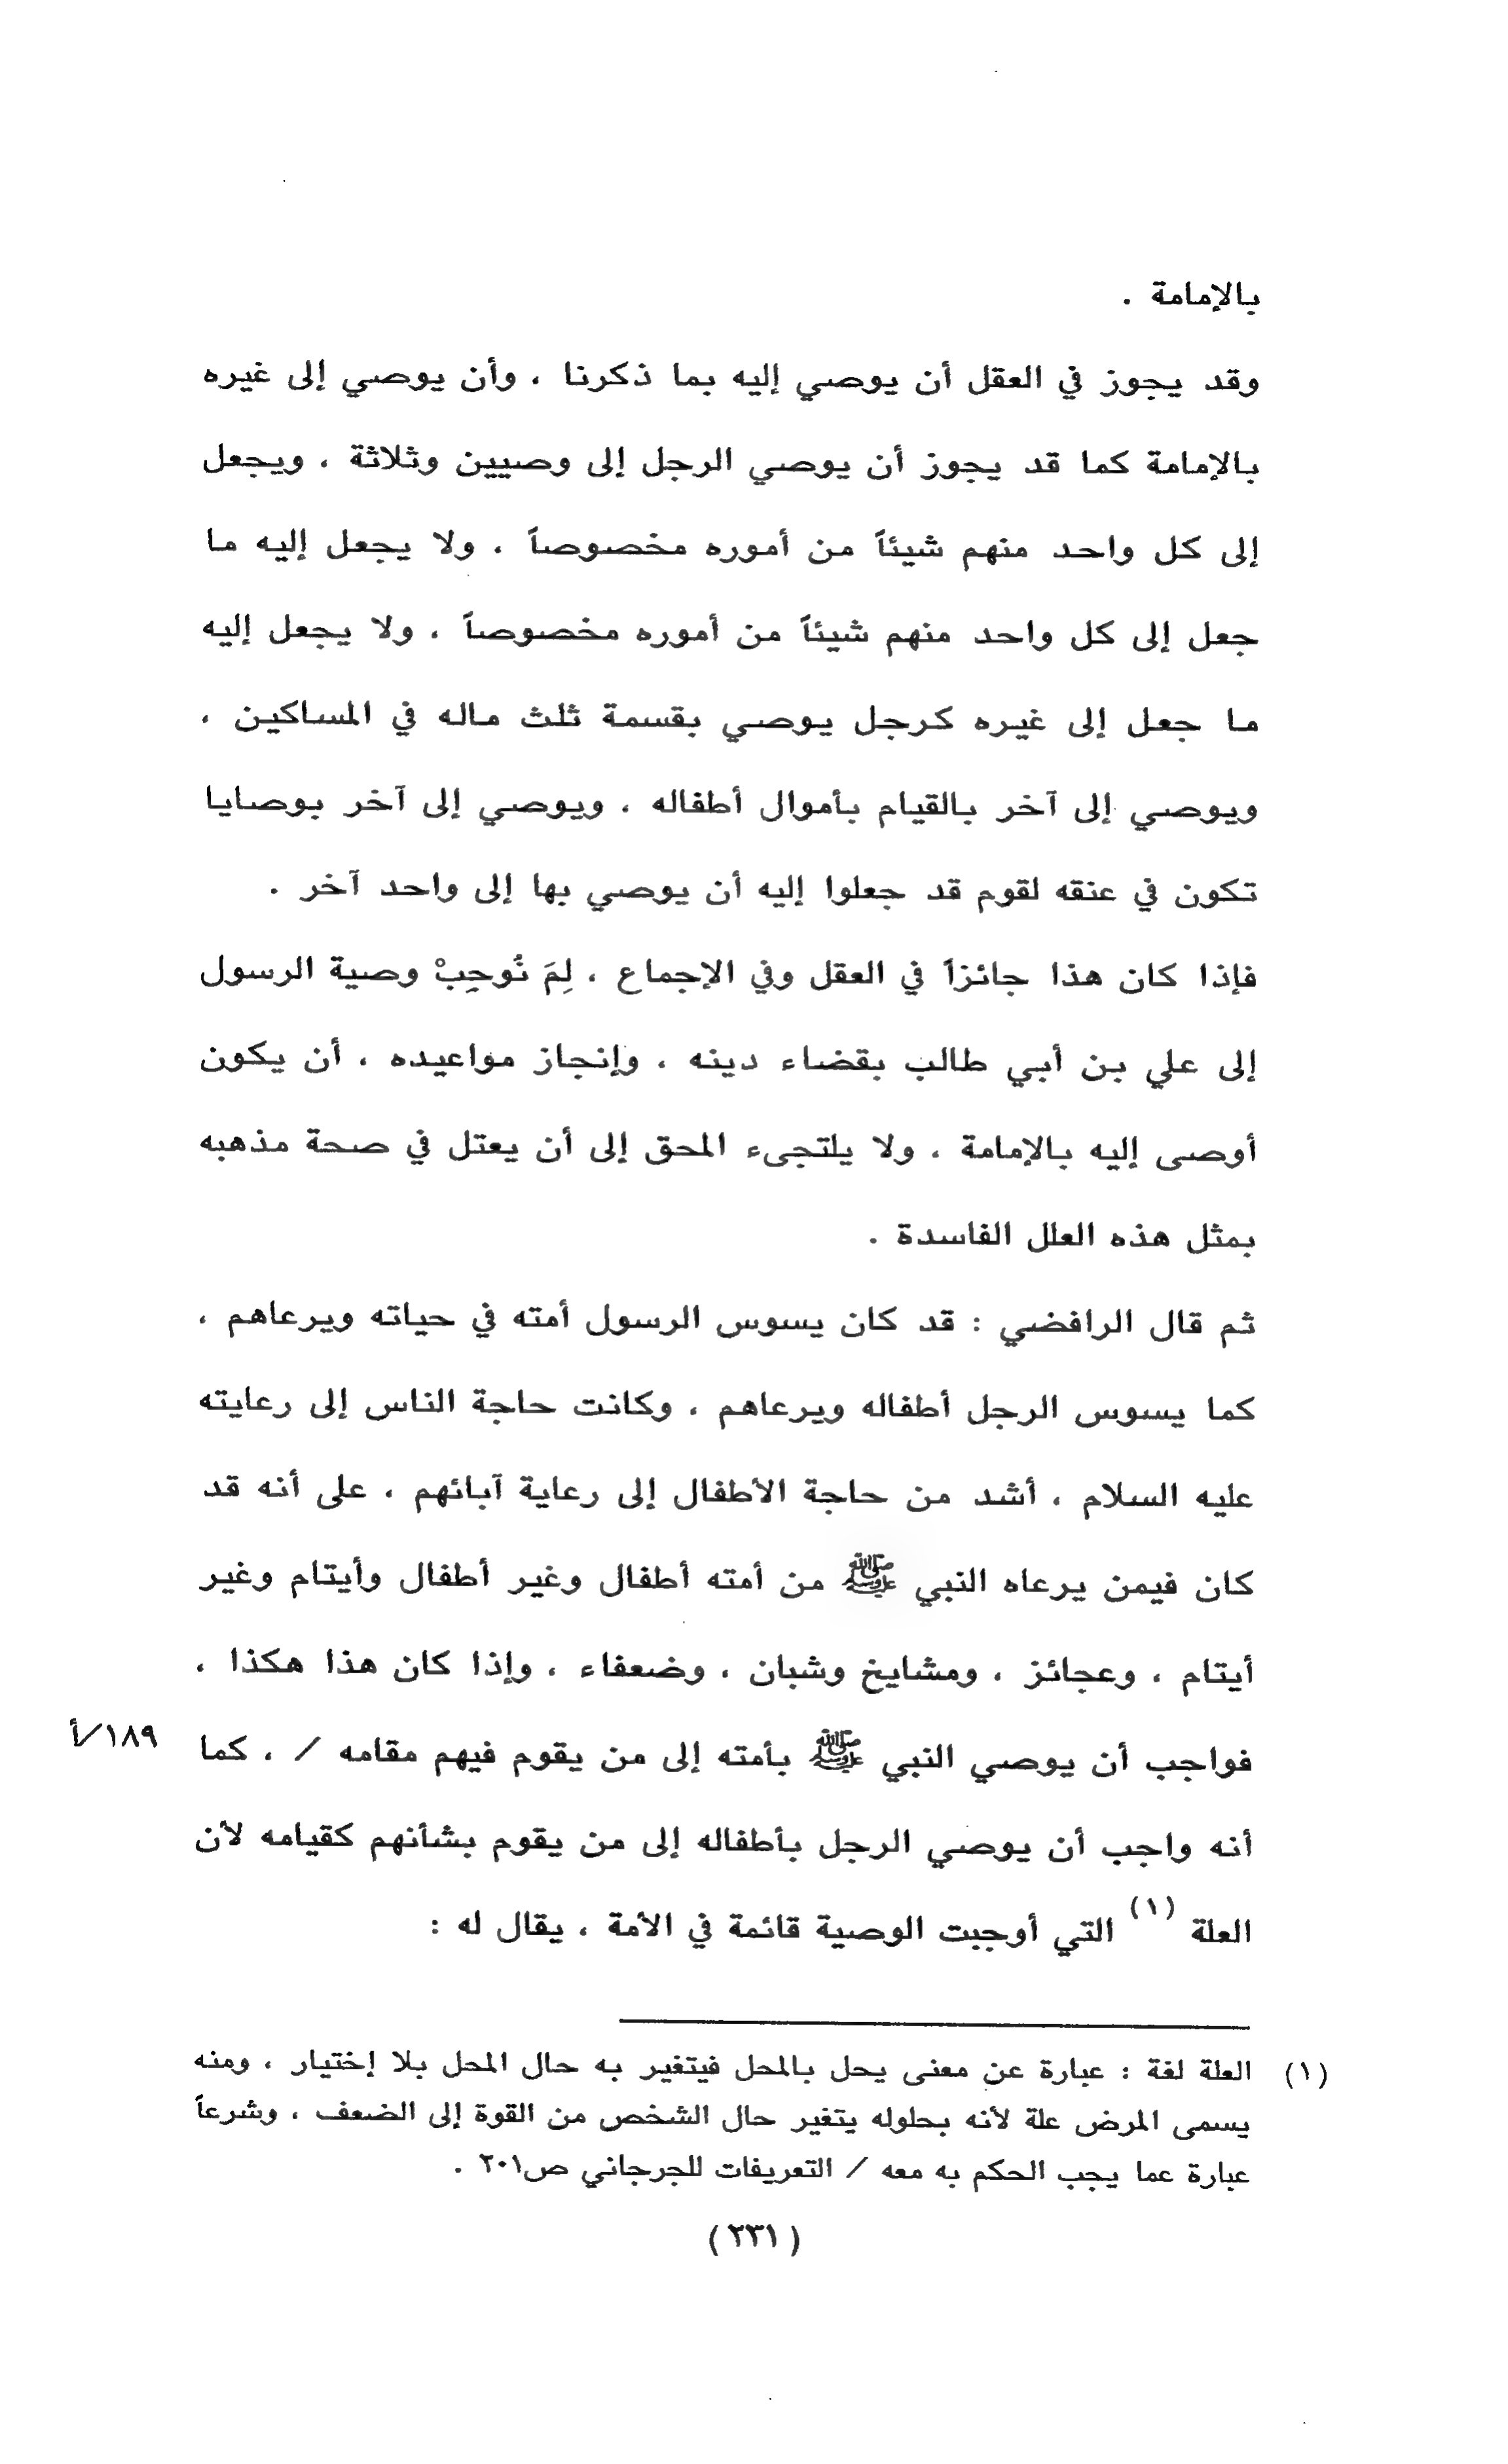 بالإمامة .
وقد يجوز في العقل أن يوصي إليه بما ذكرنا ، وأن يوصي إلى غيره
بالإمامة كما قد يجوز أن يوصي الرجل إلى وصيين وثلاثة ، ويجعل
إلى كل واحد منهم شيئاً من أموره مخصوصاً ، ولا يجعل إليه ما
جعل إلى كل واحد منهم شيئاً من أموره مخصوصاً ، ولا يجعل إليه
ما جعل إلى غيره كرجل يوصي بقسمة ثلث ماله في المساكين ،
ويوصي إلى آخر بالقيام بأموال أطفاله ، ويوصي إلى آخر بوصايا
تكون في عنقه لقوم قد جعلوا إليه أن يوصي بها إلى واحد آخر .
فإذا كان هذا جائزاً في العقل وفي الإجماع ، لِمَ نُوجِبْ وصية الرسول
إلى علي بن أبي طالب بقضاء دينه ، وإنجاز مواعيده ، أن يكون
أوصى إليه بالإمامة ، ولا يلتجىء المحق إلى أن يعتل في صحة مذهبه
بمثل هذه العلل الفاسدة .
ثم قال الرافضي : قد كان يسوس الرسول أمته في حياته ويرعاهم ،
كما يسوس الرجل أطفاله ويرعاهم ، وكانت حاجة الناس إلى رعايته
عليه السلام ، أشد من حاجة الأطفال إلى رعاية آبائهم ، على أنه قد
كان فيمن يرعاه النبي ﷺ من أمته أطفال وغير أطفال وأيتام وغير
أيتام ، وعجائز ، ومشايخ وشبان ، وضعفاء ، وإذا كان هذا هكذا ،
فواجب أن يوصي النبي ﷺ بأمته إلى من يقوم فيهم مقامه / ، كما ١٨٩/أ
أنه واجب أن يوصي الرجل بأطفاله إلى من يقوم بشأنهم كقيامه لأن
العلة (١) التي أوجبت الوصية قائمة في الأمة ، يقال له :
(١) العلة لغة : عبارة عن معنى يحل بالمحل فيتغير به حال المحل بلا إختيار ، ومنه
يسمى المرض علة لأنه بحلوله يتغير حال الشخص من القوة إلى الضعف ، وشرعاً
عبارة عما يجب الحكم به معه / التعريفات للجرجاني ص٢٠١ .
(٢٣١)